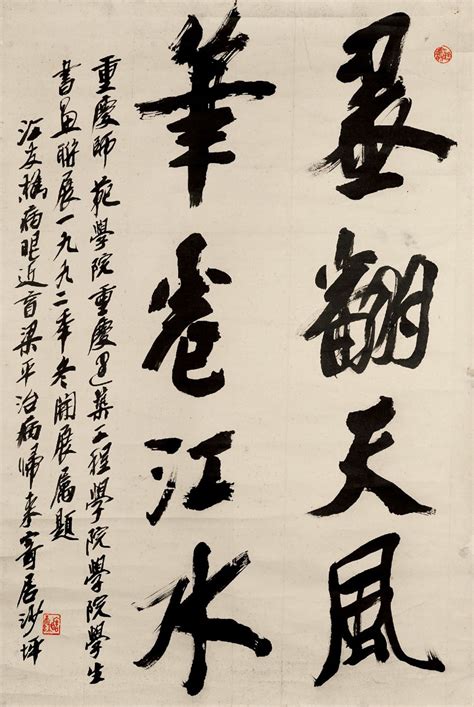 墨翻天風
筆卷江水
重慶師范學院重慶建築工程學院學院學生
書畫聯展一九九二年冬開展屬題
江友樵病眼近盲梁平治病歸來寄居沙坪